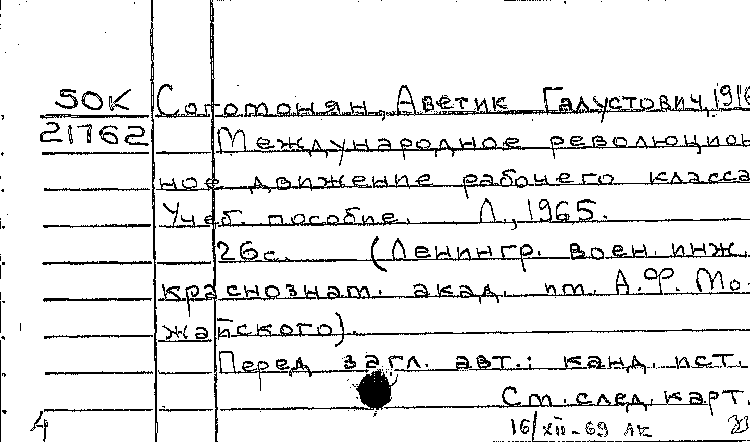 50К Согомонян, Аветик Галустович, 1916
21762 Международное революцион
ное движение рабочего класса
Учеб. пособие. Л., 1965.
26с. (Ленингр. воен. инж.
краснознам. акад. им. А.Ф. Мо-
жайского).
Перед загл. авт.: канд. ист.
См. след. карт.
4 16/XII-69 лк